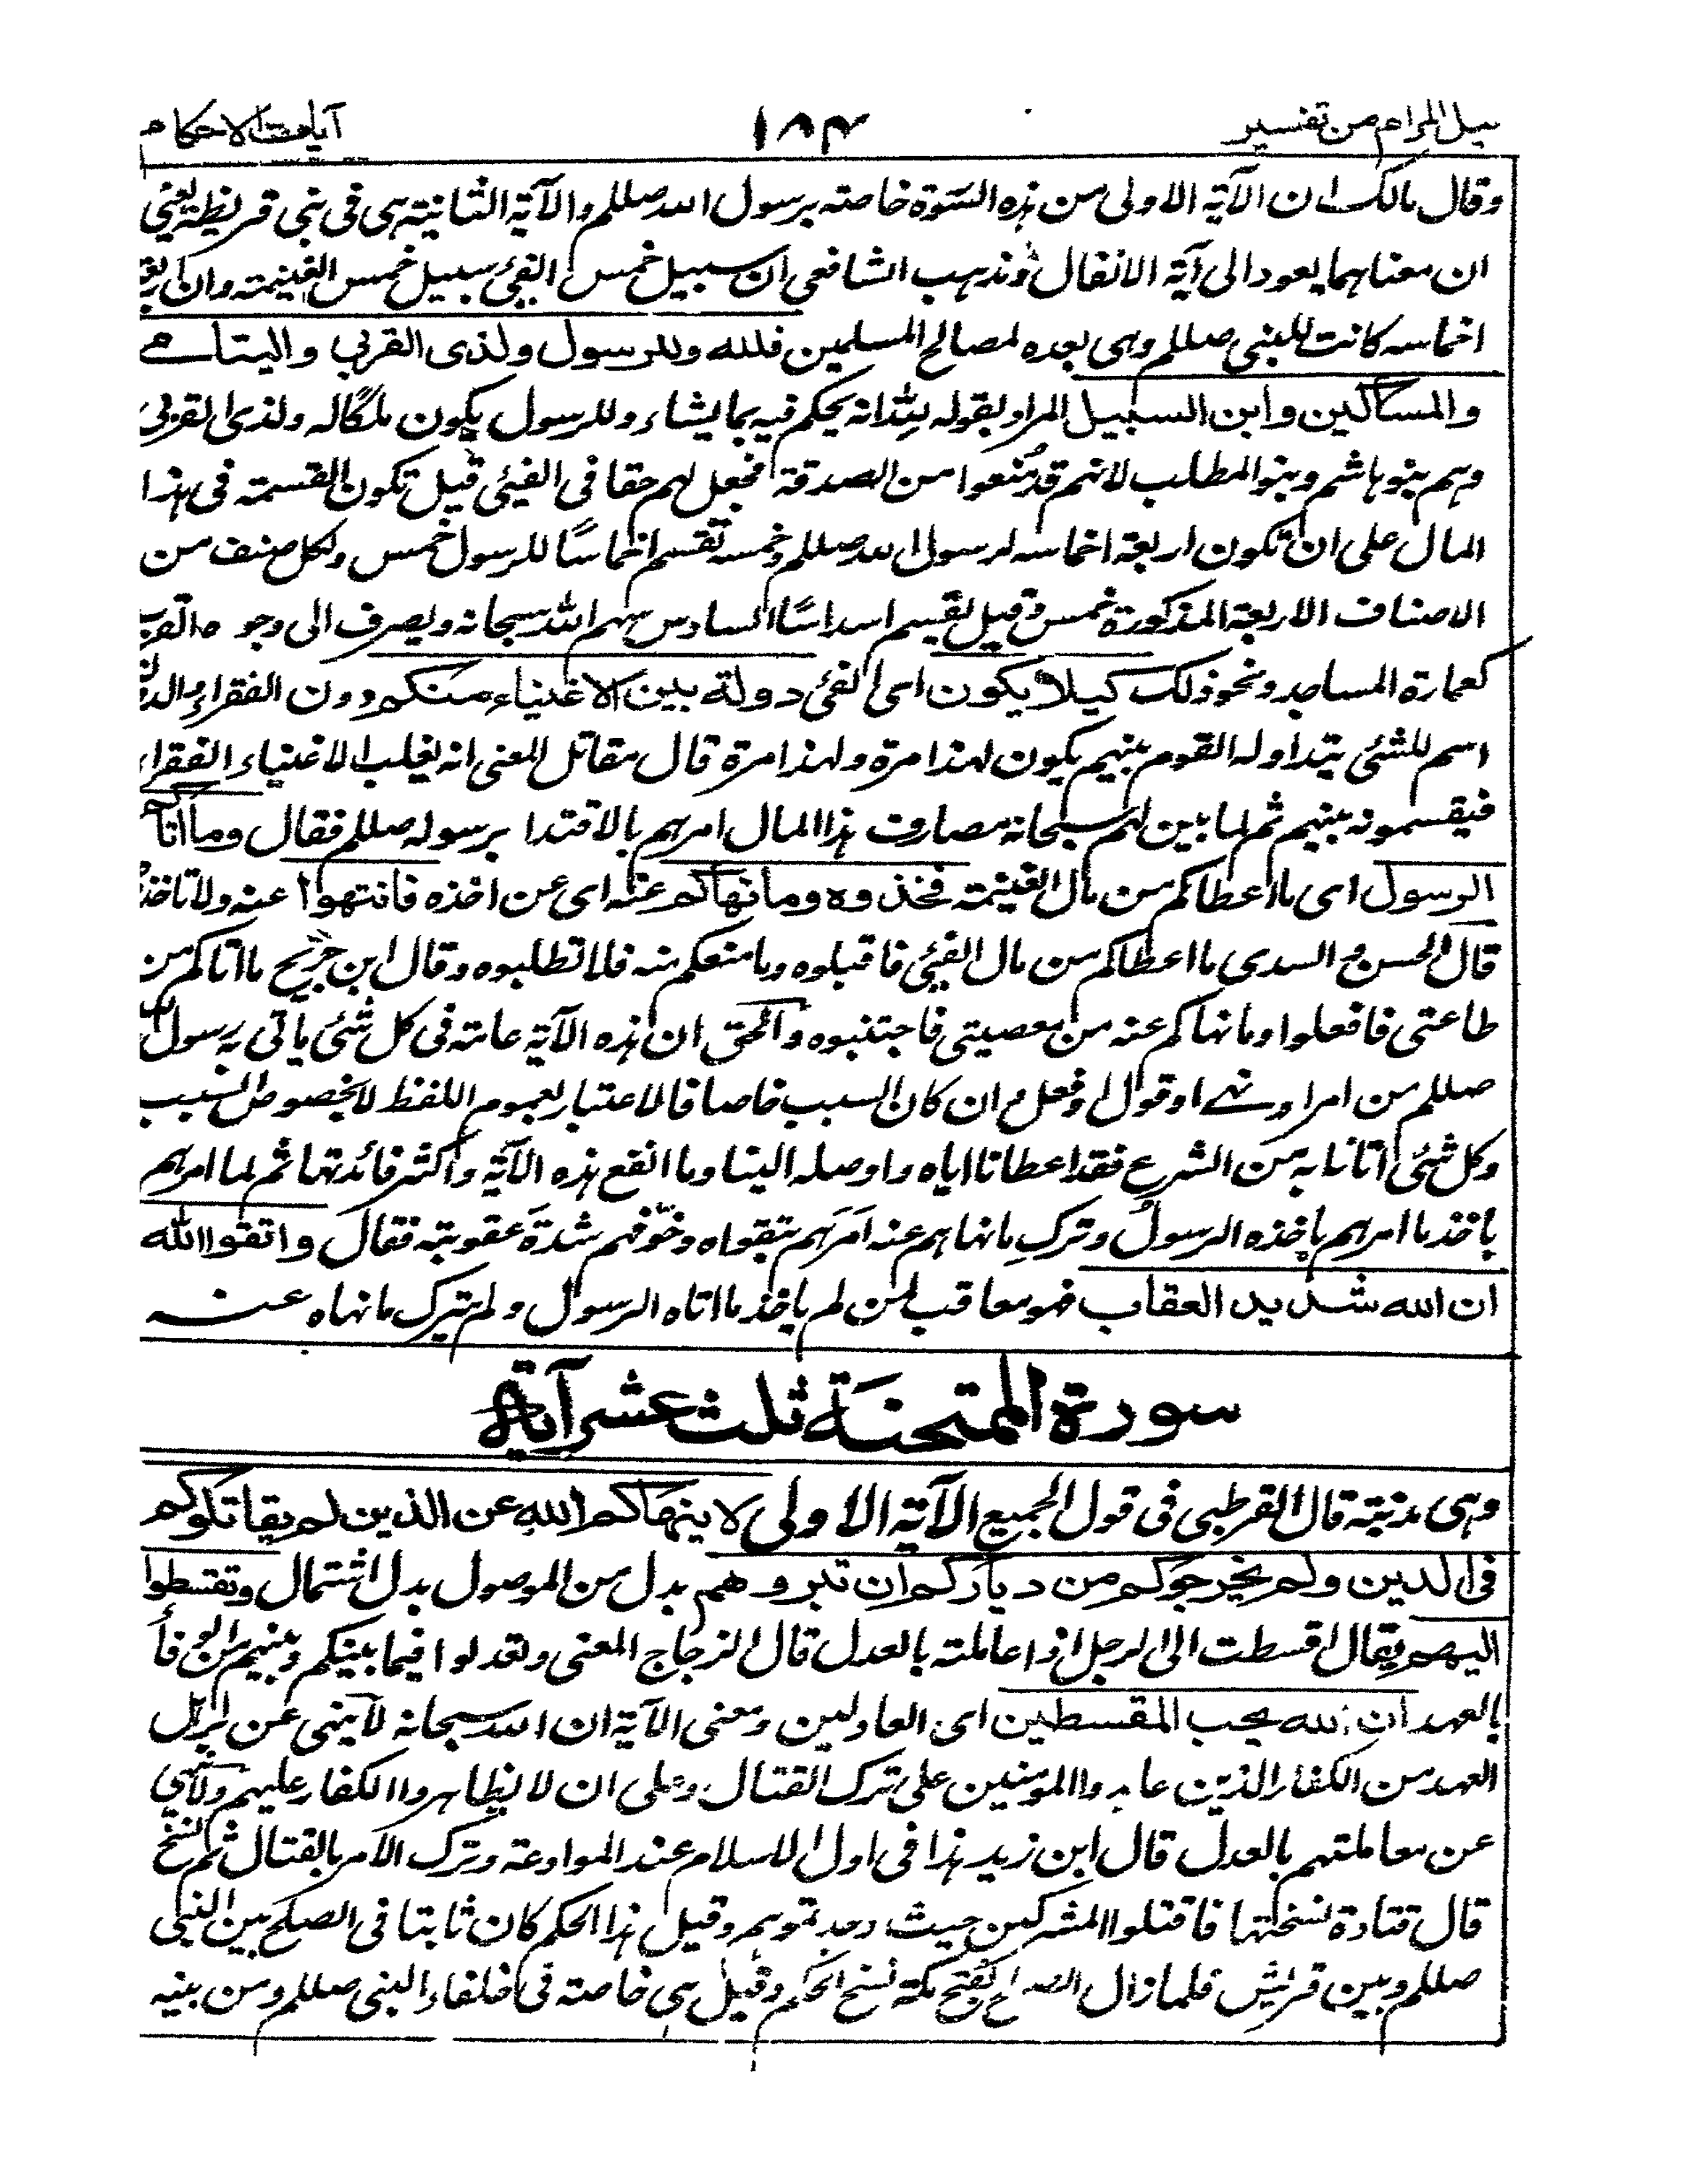 نيل المرام من تفسير ١٨٤ آيات الاحكام
وقال مالك ان الآية الاولى من هذه السورة خاصة برسول الله صللم والآية الثانية هى فى بنى قريظة يعنى
ان معناهما يعود الى آية الانفال ومذهب الشافعى ان سبيل خمس الفئى سبيل خمس الغنيمة وان اربعة
اخماسه كانت للنبى صللم وهى بعده لمصالح المسلمين فلله وللرسول ولذى القربى واليتامى
والمساكين وابن السبيل المراد بقوله لله انه يحكم فيه بما يشاء وللرسول يكون ملكا له ولذى القربى
وهم بنو هاشم وبنو المطلب لانهم قد منعوا من الصدقة فجعل لهم حقا فى الفئى قيل تكون القسمة فى هذا
المال على ان تكون اربعة اخماسه لرسول الله صللم وخمسه تقسم اخماسًا للرسول خمس ولكل صنف من
الاصناف الاربعة المذكورة خمس وقيل يقسم اسداسًا السادس سهم الله سبحانه ويصرف الى وجوه القرب
كعمارة المساجد ونحو ذلك كيلا يكون اى الفئى دولة بين الاغنياء منكم دون الفقراء والدولة
اسم للشئى يتداوله القوم بينهم يكون لهذا مرة ولهذا مرة قال مقاتل المعنى انه يغلب الاغنياء الفقراء
فيقسمونه بينهم ثم لما بين لهم سبحانه مصارف هذا المال امرهم بالاقتدا برسوله صللم فقال وما اتاكم
الرسول اى ما اعطاكم من مال الغنيمة فخذوه وما نهاكم عنه اى عن اخذه فانتهوا عنه ولا تاخذوه
قال الحسن والسدى ما اعطاكم من مال الفئى فاقبلوه وما منعكم منه فلا تطلبوه وقال ابن جريج ما اتاكم من
طاعتى فافعلوا وما نهاكم عنه من معصيتى فاجتنبوه والحق ان هذه الآية عامة فى كل شئى ياتى به رسول الله
صللم من امر او نهى او قول او فعل وان كان السبب خاصا فالاعتبار بعموم اللفظ لا بخصوص السبب
وكل شئى اتانا به من الشرع فقد اعطانا اياه واوصله الينا وما انفع هذه الآية واكثر فائدتها ثم لما امرهم
باخذ ما امرهم باخذه الرسول وترك ما نهاهم عنه امرهم بتقواه وخوفهم شدة عقوبته فقال واتقوا الله
ان الله شديد العقاب فهو معاقب لمن لم ياخذ ما اتاه الرسول ولم يترك ما نهاه عنه
سورة الممتحنة ثلث عشر آية
وهى مدنية قال القرطبى فى قول الجميع الآية الاولى لا ينهاكم الله عن الذين لم يقاتلوكم
فى الدين ولم يخرجوكم من دياركم ان تبروهم بدل من الموصول بدل اشتمال وتقسطوا
اليهم يقال اقسطت الى الرجل اذا عاملته بالعدل قال الزجاج المعنى وتعدلوا فيما بينكم وبينهم من الوفأ
بالعهد ان الله يحب المقسطين اى العادلين ومعنى الآية ان الله سبحانه لا ينهى عن بر اهل
العهد من الكفار الذين عاهدوا المومنين على ترك القتال وعلى ان لا يظاهروا الكفار عليهم ولا ينهى
عن معاملتهم بالعدل قال ابن زيد هذا فى اول الاسلام عند الموادعة وترك الامر بالقتال ثم نسخ
قال قتادة نسختها فاقتلوا المشركين حيث وجدتموهم وقيل هذا الحكم كان ثابتا فى الصلح بين النبى
صللم وبين قريش فلما زال الصلح بفتح مكة نسخ الحكم وقيل هى خاصة فى حلفاء النبى صللم ومن بينه